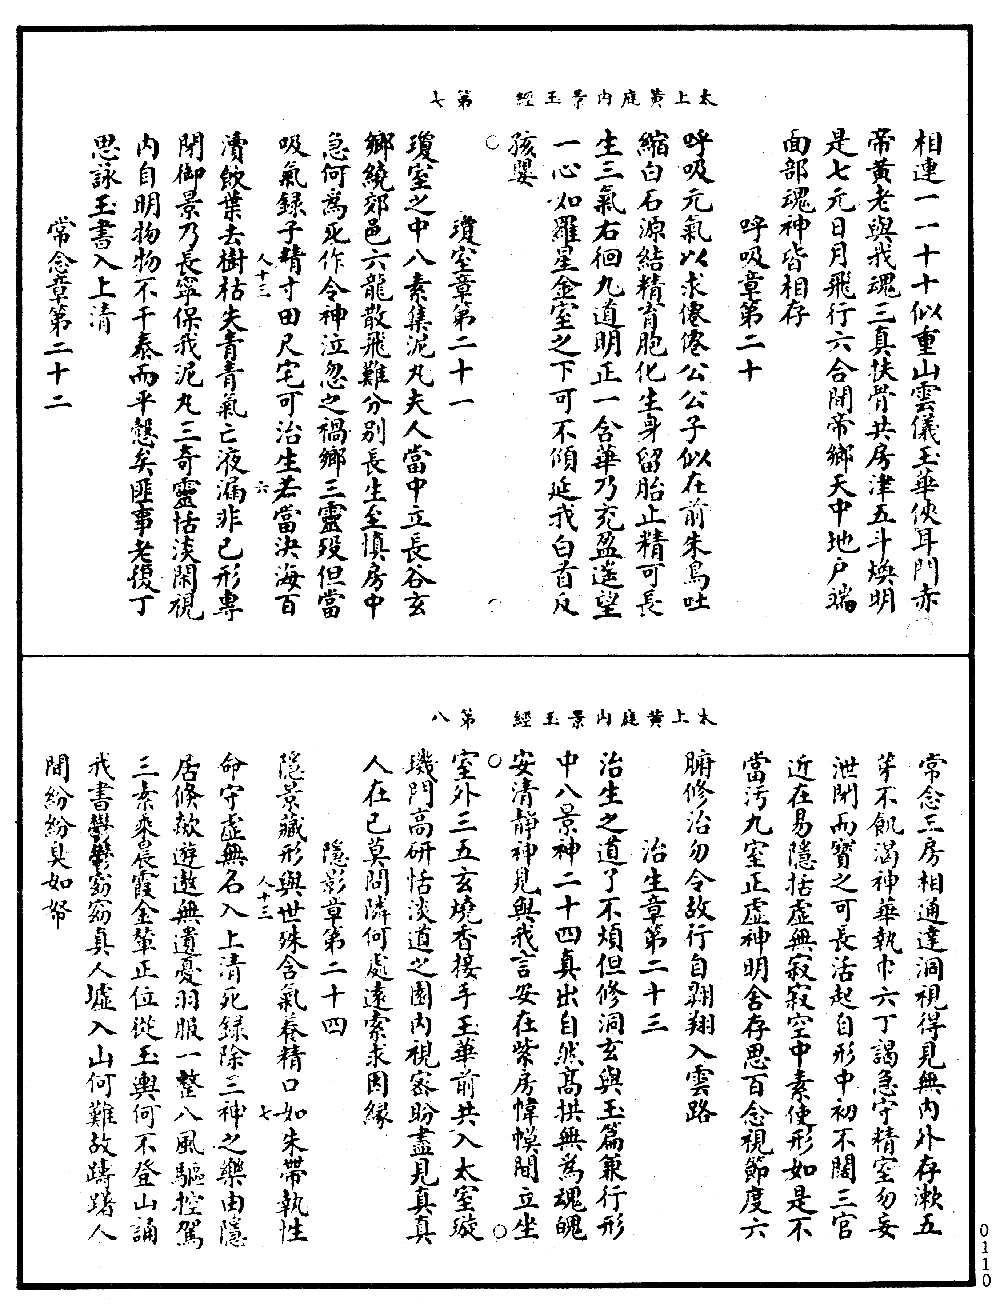 太上黃庭內景玉經　第七
相連一一十十似重山雲儀玉華俠耳門赤
帝黃老與我魂三真扶骨共房津五斗煥明
是七元日月飛行六合間帝鄉天中地戶端
面部魂神皆相存
呼吸章第二十
呼吸元氣以求僊僊公公子似在前朱鳥吐
縮白石源結精育胞化生身留胎止精可長
生三氣右徊九道明正一含華乃充盈遙望
一心如羅星金室之下可不傾延我白首反
孩嬰
瓊室章第二十一
瓊室之中八素集泥丸夫人當中立長谷玄
鄉繞郊邑六龍散飛難分別長生至慎房中
急何為死作令神泣忽之禍鄉三靈歿但當
吸氣録子精寸田尺宅可治生若當決海百
人十三　六
瀆飲葉去樹枯失青青氣亡液漏非己形專
閉御景乃長寧保我泥丸三奇靈恬淡閑視
內自明物物不干泰而平慤矣匪事老復丁
思詠玉書入上清
常念章第二十二
太上黃庭內景玉經　第八
常念三房相通達洞視得見無內外存漱五
芽不飢渴神華執巾六丁謁急守精室勿妄
泄閉而寶之可長活起自形中初不闊三官
近在易隱括虛無寂寂空中素使形如是不
當汚九室正虛神明舍存思百念視節度六
腑修治勿令故行自翱翔入雲路
治生章第二十三
治生之道了不煩但修洞玄與玉篇兼行形
中八景神二十四真出自然高拱無為魂魄
安清靜神見與我言安在紫房幃幙間立坐
室外三五玄燒香接手玉華前共入太室璇
璣門高研恬淡道之園內視密盼盡見真真
人在己莫問隣何處遠索求因緣
隱影章第二十四
隱景藏形與世殊含氣養精口如朱帶執性
人十三　七
命守虛無名入上清死録除三神之樂由隱
居倏欻遊遨無遺憂羽服一整八風驅控駕
三素乘晨霞金輦正位從玉輿何不登山誦
我書鬱鬱窈窈真人墟入山何難故躊躇人
間紛紛臭如帤
0110